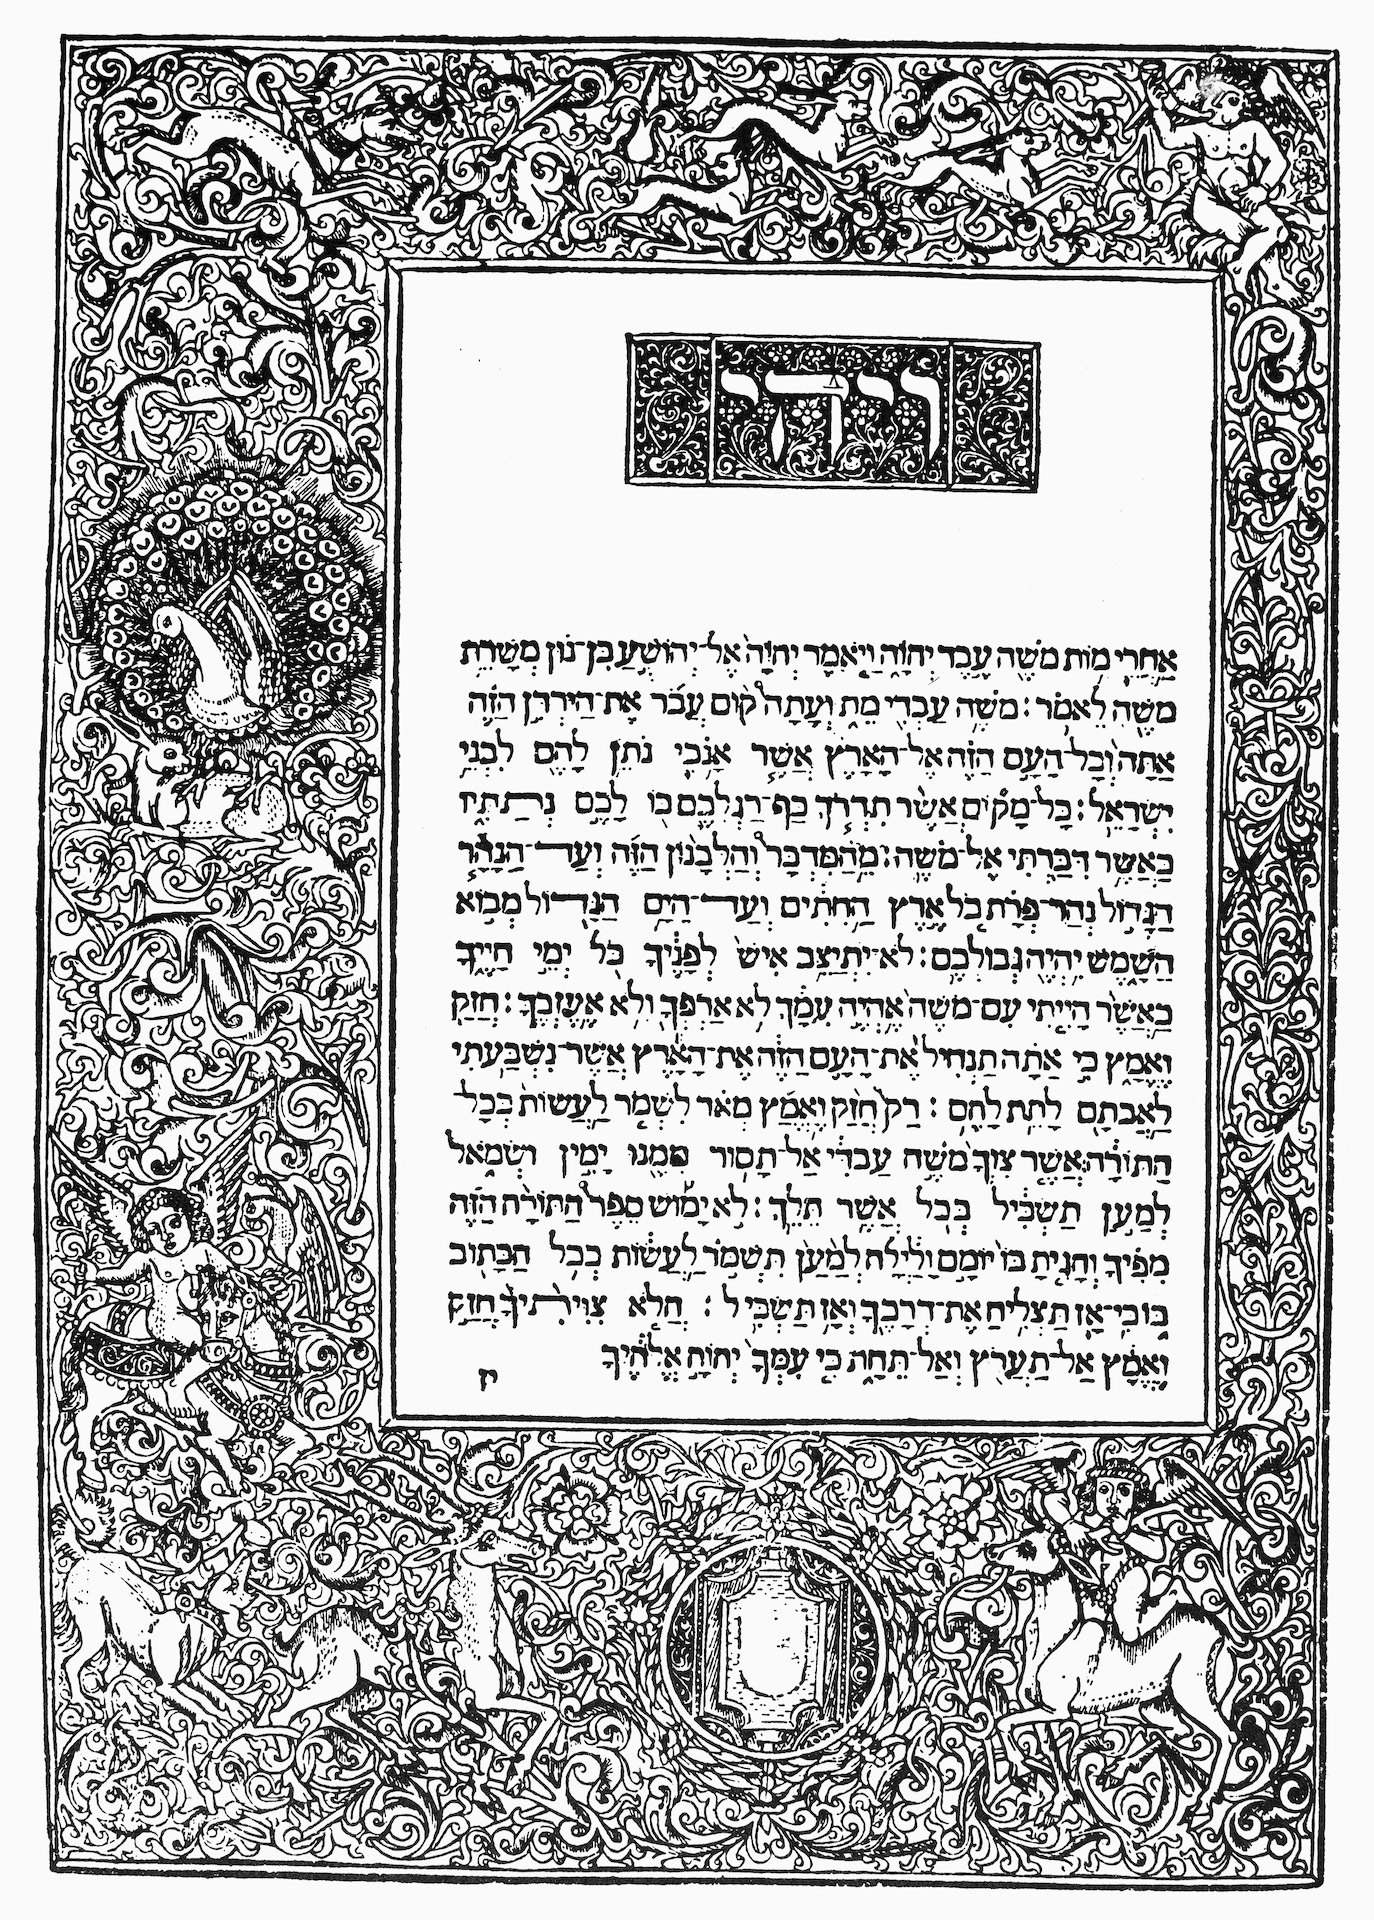 ויהי
אחרי מות משה עבד יהוה ויאמר יהוה אל־יהושע בן־נון משרת
משה לאמר: משה עבדי מת ועתה קום עבר את־הירדן הזה
אתה וכל־העם הזה אל־הארץ אשר אנכי נתן להם לבני
ישראל: כל־מקום אשר תדרך כף־רגלכם בו לכם נתתיו
כאשר דברתי אל־משה: מהמדבר והלבנון הזה ועד־הנהר
הגדול נהר־פרת כל ארץ החתים ועד־הים הגדול מבוא
השמש יהיה גבולכם: לא־יתיצב איש לפניך כל ימי חייך
כאשר הייתי עם־משה אהיה עמך לא ארפך ולא אעזבך: חזק
ואמץ כי אתה תנחיל את־העם הזה את־הארץ אשר־נשבעתי
לאבתם לתת להם: רק חזק ואמץ מאד לשמר לעשות ככל־
התורה אשר צוך משה עבדי אל־תסור ממנו ימין ושמאל
למען תשכיל בכל אשר תלך: לא ימוש ספר התורה הזה
מפיך והגית בו יומם ולילה למען תשמר לעשות ככל הכתוב
בו כי־אז תצליח את־דרכך ואז תשכיל: הלא צויתיך חזק
ואמץ אל־תערץ ואל־תחת כי עמך יהוה אלהיך
יז